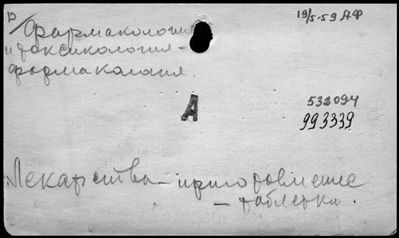 19/5-59 АФ
р/ Фармакология
и токсикология -
фармакология.
А
532094
993339
Лекарства - приготовление
- таблетки.